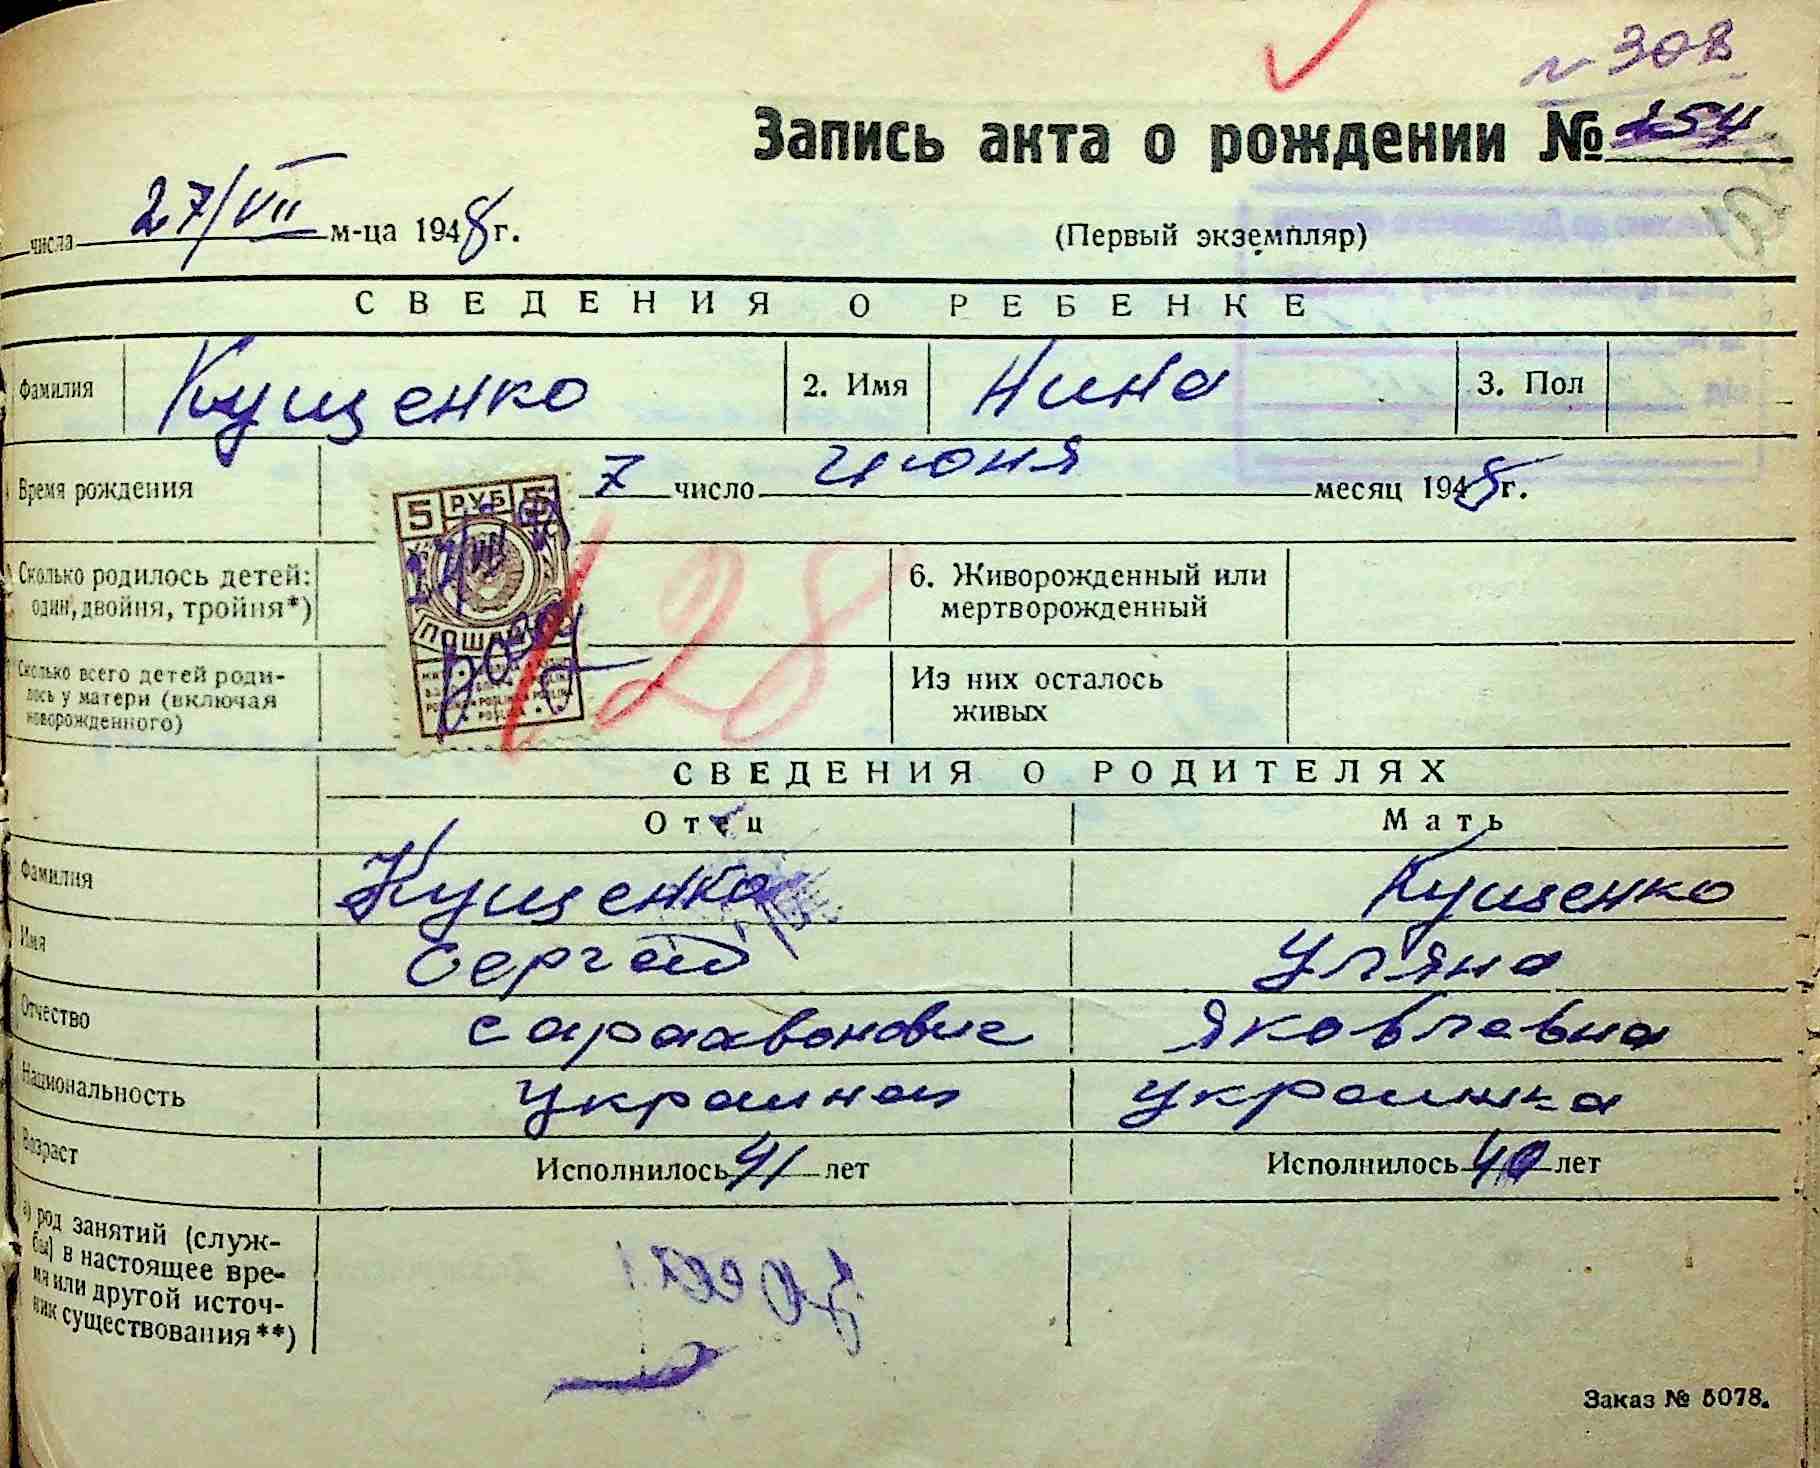 № 308
Запись акта о рождении № 154
числа 27/VII м-ца 1948 г. (Первый экземпляр)
СВЕДЕНИЯ О РЕБЕНКЕ
Фамилия Кущенко 2. Имя Нина 3. Пол
Время рождения 7 число июня месяц 1948 г.
5 РУБ 5
Сколько родилось детей: один, двойня, тройня*) 6. Живорожденный или мертворожденный
128
Сколько всего детей родилось у матери (включая новорожденного) Из них осталось живых
СВЕДЕНИЯ О РОДИТЕЛЯХ
Отец Мать
Фамилия Кущенко Кущенко
Имя Сергей Уляна
Отчество Яковлевна
Национальность украинец украинка
Возраст Исполнилось 41 лет Исполнилось 40 лет
а) род занятий (служ-
бы) в настоящее вре-
мя или другой источ-
ник существования**)
Заказ № 5078.